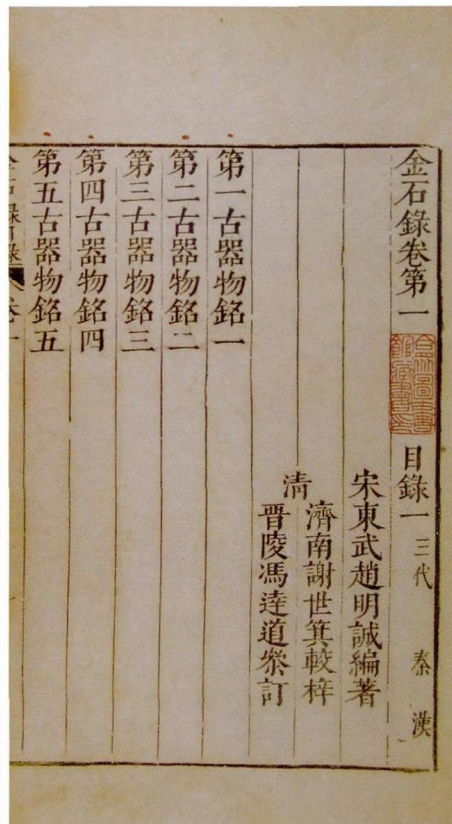 金石錄卷第一 目錄一 三代 秦 漢
宋東武趙明誠編著
清
濟南謝世箕較梓
晉陵馮達道叅訂
第一古器物銘一
第二古器物銘二
第三古器物銘三
第四古器物銘四
第五古器物銘五
金石錄目錄 卷一